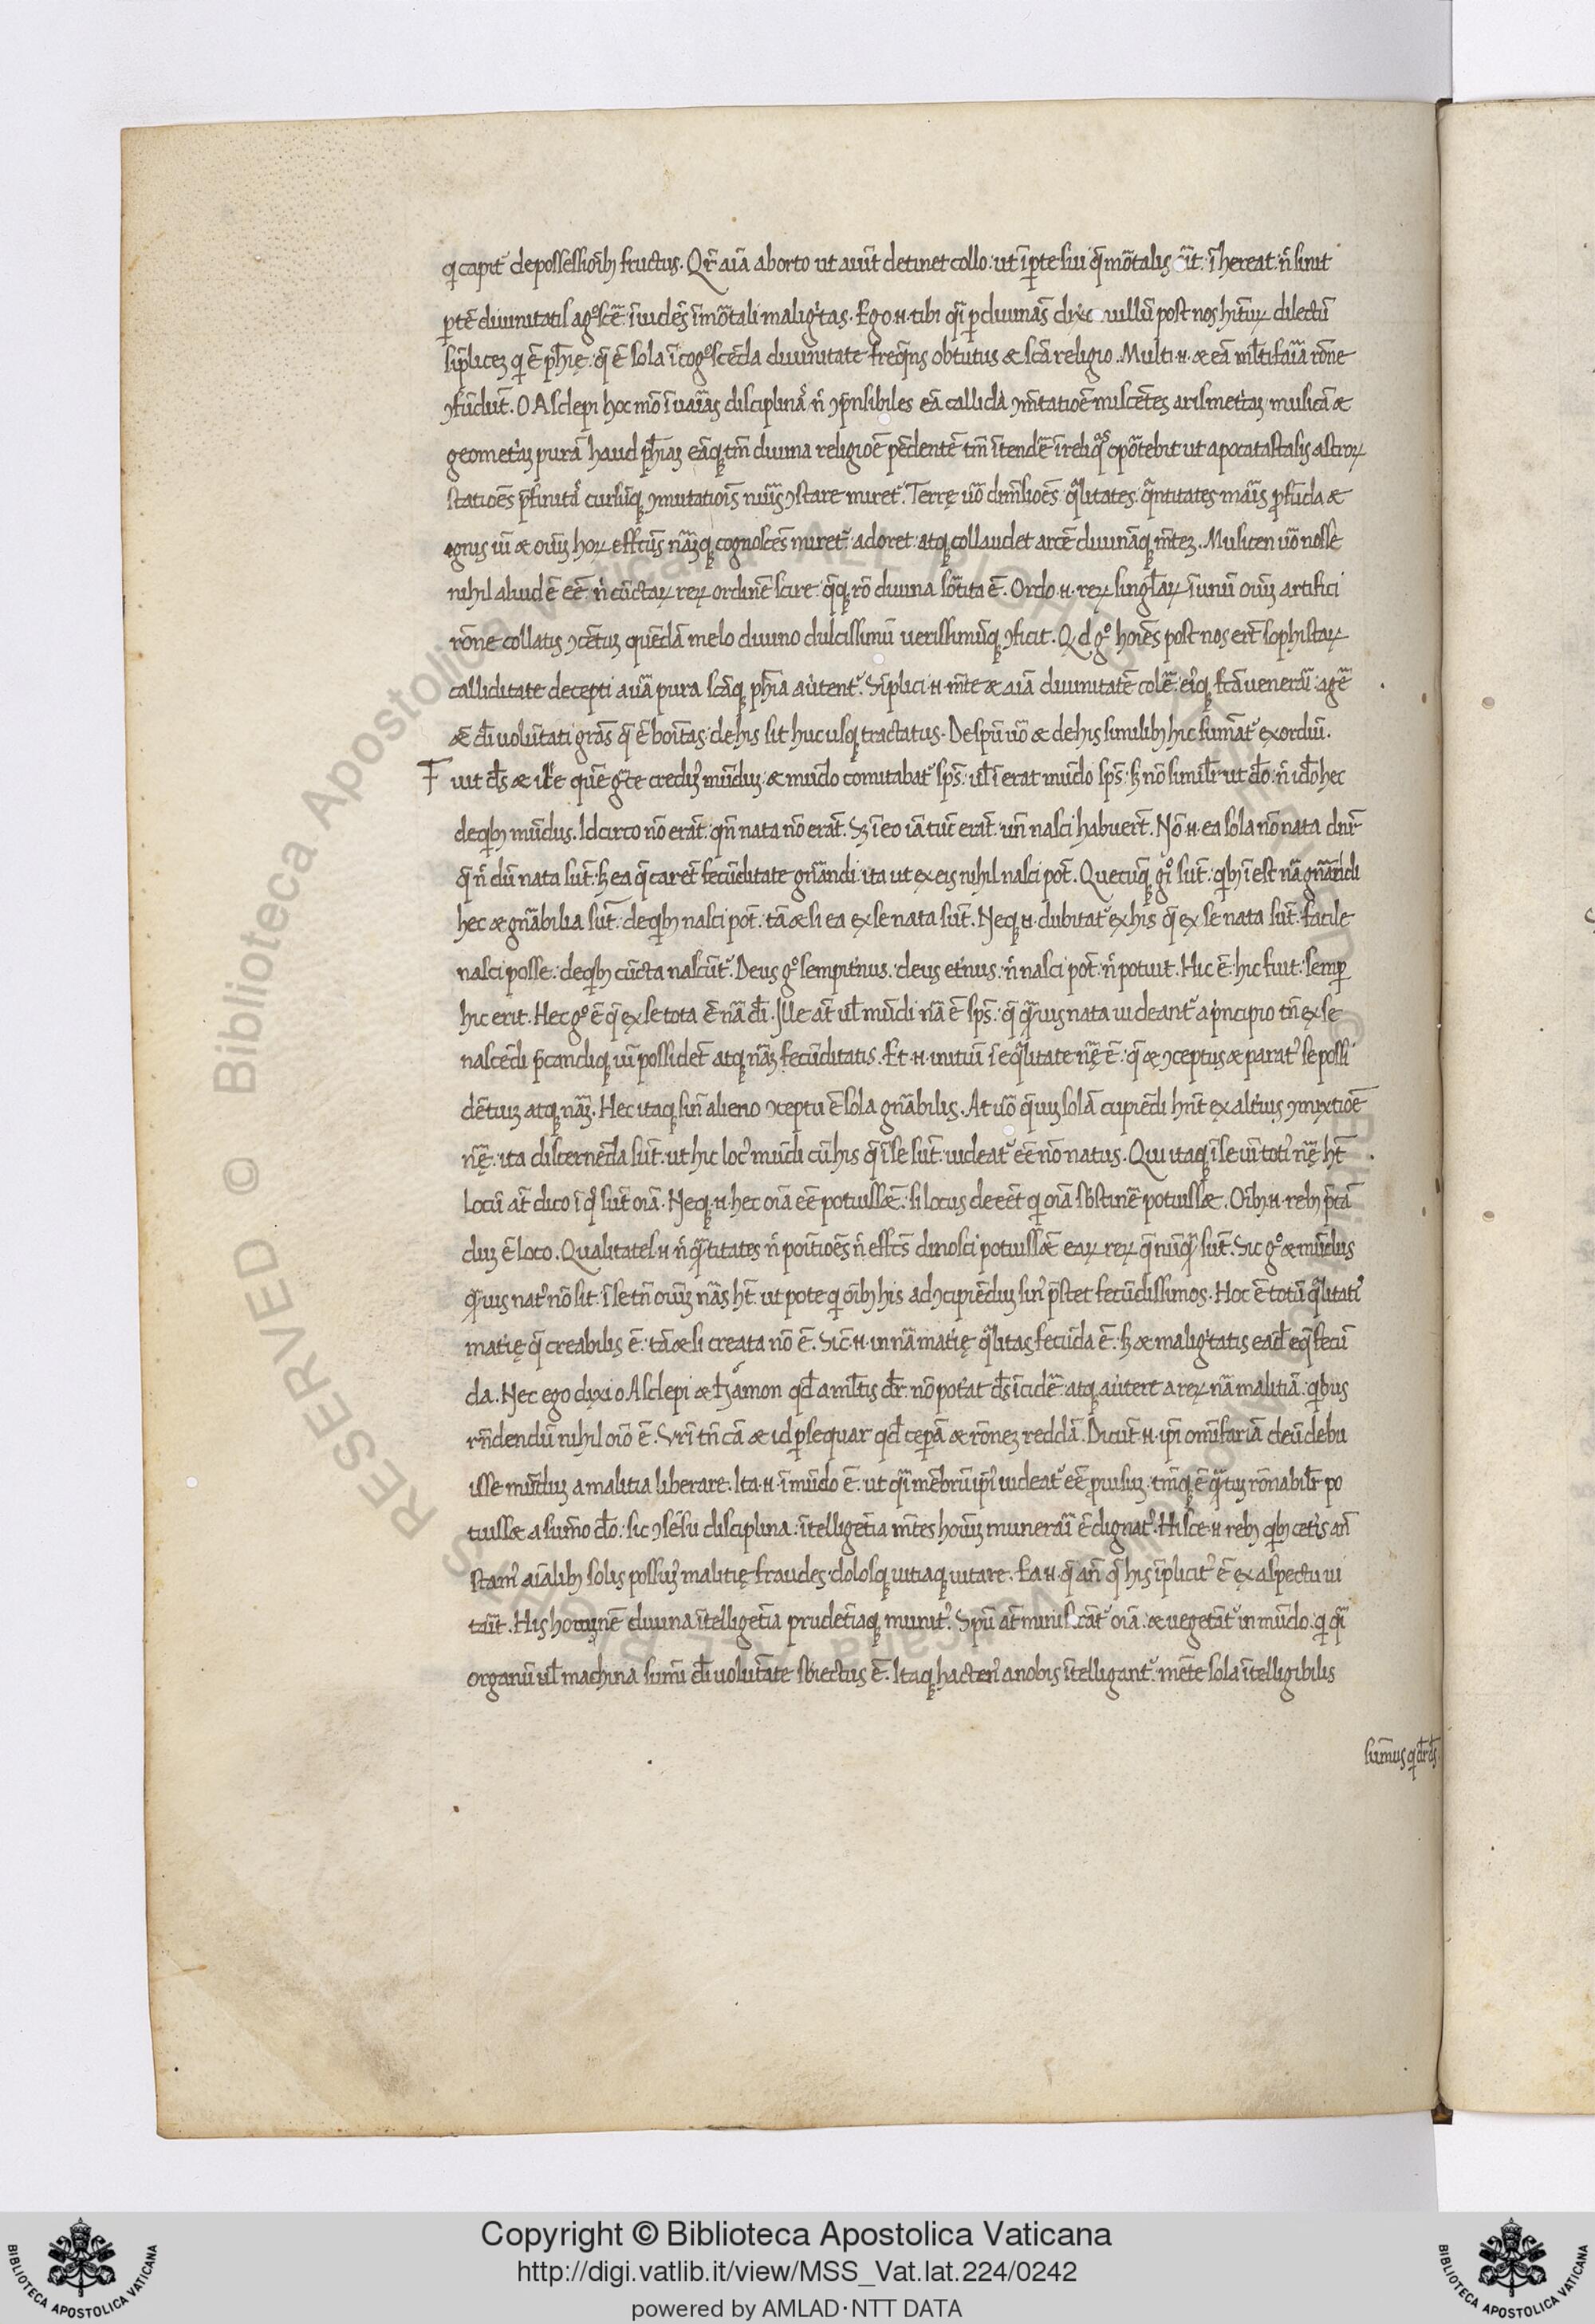 qi capit de possessioīb fructus. Qr̄ aīa aborto ut aiūt detinet collo. ut ī pte sui q̄ mōtalis īhereat. n̄ sinit
ptē diuinitatis agºscē. īuidēs īmōtali maligtas. Ego .n. tibi qi p diuinās nullū post nos hītur dilectū
sīplicez qi ē phīę. q̄ ē sola ī cogºscēda diuinitate freqns obtutus æ scā religio. Multi .n. æ eā ml̄tifaīa rōne
ꝯfūdūt. O Asclepi hoc mō ī uaīas disciplinas n̄ ꝯpn̄sibiles eā callida ꝯm̄tatioē miscētes arismetᶦcaz musicā æ
geometᶦaz purā haud phīaz eāqꝫ tm̄ diuina religioē pēdentē tm̄ ītendē ī reliqos opōtebit ut apocatastasis astroꝝ
statioēs p̄finitas cursūqꝫ ꝯmutatiōis nūis ꝯstare miret᷑. Terrę uō dimēsioēs qlitates qntitates maīs pfūda æ
ignis uī æ oīuz hoꝝ effctūs nāꝫqꝫ cognoscēs miret᷑. adoret. atqꝫ collaudet arcē diuināqꝫ mtez. Musicen uō nosse
nihil aliud ē eē n̄ cūctaꝝ reꝝ ordinē scire. qqꝫ rō diuina sōtita ē. Ordo .n. reꝝ singlaꝝ ī unū oīuz artifici
rōne collatus ꝯcētuz quēdā melo diuino dulcissimū uerissimūqꝫ ꝯficit. Qd gº hoīes post nos erūt sophistaꝝ
calliditate decepti a uā pura scāqꝫ phīa auᵗtent᷑. Sīplici .n. mte æ aīa diuinitatē colē. eiᵒqꝫ fctā uenerari. agē
æ dī uolūtati grās q̄ ē boītas. de his sit hucusqꝫ tractatus. De spū uō æ de his similibꝫ hic sumat᷑ exordiū.
Fuit ds æ ile quē gce crediᵒ mūduz. æ mūdo comitabat᷑ sps. ul īerat mūdo sps. sꝫ nō similr ut dō. n̄ idō hec
de qbꝫ mūdus. Idcirco nō erāt. qn̄ nata nō erāt. Sꝫ ī eo iā tūc erāt. un̄ nasci habuert̄. Nō .n. ea sola nō nata dnr̄
q̄ n̄dū nata sūt. sꝫ ea q̄ carēt fecūditate gn̄andi. ita ut ex eis nihil nasci pōt. Quecūqꝫ gº sūt. qbꝫ īest nā gn̄andi
hec æ gn̄abilia sūt. de qbꝫ nasci pōt. tā æ si ea ex se nata sūt. Neqꝫ .n. dubitat᷑ ex his q̄ ex se nata sūt. facile
nasci posse. de qbꝫ cūcta nascūt᷑. Deus gº sempitᵗnus. deus etᵗnus. n̄ nasci pōt. n̄ potuit. Hic ē. hic fuit. semp
hic erit. Hec gº ē q̄ ex se tota ē nā dī. Ille at ul mūdi nā ē sps. q̄ quis nata uideant᷑ a pncipio tn̄ ex se
nascēdi pcandiqꝫ uī possidet atqꝫ nāz fecūditatis. Et .n. initiū ī eqlitate nę ē. q̄ æ ꝯceptus æ paratᵒ se possi
dēt uiz atqꝫ nāz. Hec itaqꝫ sin alieno ꝯceptu ē sola gn̄abilis. At uō q̄ uiz solā cipiēdi hn̄t ex altᵗius ꝯmixtiōē
nę. ita discernēda sūt. ut hic locᵒ mūdi cū his q̄ ī se sūt. uideat᷑ eē nō natus. Qui itaqꝫ ī se uī totiᵒ nę ht̄
Locū at dico ī qo sūt oīa. Neqꝫ .n. hec oīa eē potuissēt. si locus deeēt qi oīa sbstinē potuissæ. Oībꝫ .n. rebꝫ pcā
duz ē loco. Qualitates .n. n̄ qtitates n̄ poitiōēs n̄ effcs dinosci potuissēt eaꝝ reꝝ q̄ nūqā sūt. Sic gº æ mūdus
quis natᵒ nō sit. ī se tn̄ oīuz nās ht̄. utpote qi oībꝫ his ad ꝯcipiēduz sinᵒ pstet fecūdissimos. Hoc ē totū qlitatᵒ
matię q̄ creabilis ē. tā æ si creata nō ē. Sic .n. in nā matię qlitas fecūda ē. sꝫ æ maligtatis eadē eq̄ fecū
da. Nec ego dixi o Asclepi æ Hamon qd a ml̄tis dr̄. nō potᵗat ds īcidē. atqꝫ auᵗtere a reꝝ nā malitiā. qbus
rn̄dendū nihil oīo ē. Vrī tn̄ cā æ id psequar qd cepā æ rōnez reddā. Dicūt .n. ipi omīfariā deū debu
isse mūduz a malitia liberare. Ita .n. ī mūdo ē. ut qi mēbrū ipiᵒ uideat᷑ eē. puisuz tmqꝫ ē qtuz rōnabilr po
tuissæ a sūmo dō. sic ꝯ sēsu disciplina. ītelligētia mtes hoīuz munerari ē dignatᵒ. Hisce .n. rebꝫ qbꝫ cetᵗis an̄
stamᵒ aīalibꝫ solis possumᵒ malitię fraudes. dolosqꝫ uitiaqꝫ uitare. Ea .n. q̄ an̄ q̄ his īplicitᵒ ē ex aspectu ui
taīt. His homine diuina ītelligētia prudētiaqꝫ munitᵒ. Spū at ministrāt᷑ oīa. æ uegetāt᷑ in mūdo. qi qi
organū ul machina sumī dī uolūtate sbiectus ē. Itaqꝫ hactenᵒ a nobis ītelligant᷑. mēte sola ītelligibilis
sūmus qi dr̄ ds.
Copyright © Biblioteca Apostolica Vaticana
http://digi.vatlib.it/view/MSS_Vat.lat.224/0242
powered by AMLAD·NTT DATA
BIBLIOTECA APOSTOLICA VATICANA
BIBLIOTECA APOSTOLICA VATICANA